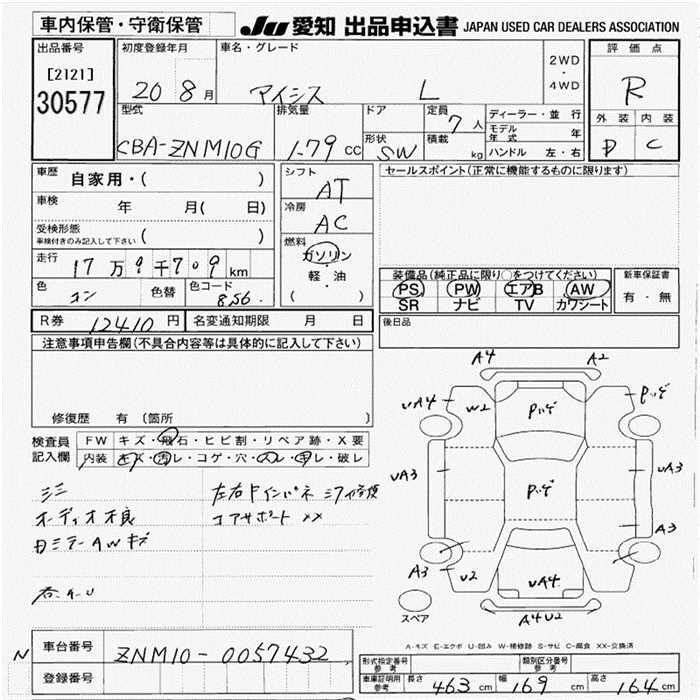 車内保管・守衛保管
JU 愛知 出品申込書 JAPAN USED CAR DEALERS ASSOCIATION
出品番号
[2121]
30577
初度登録年月
20 8月
車名・グレード
アイシス L
2WD
・
4WD
評価点
R
外装 内装
D C
型式
CBA-ZNM10G
排気量
1.79 cc
ドア
形状
SW
定員
7人
積載
kg
ディーラー・並行
モデル年式 年
ハンドル 左・右
車歴
自家用・( )
車検
年 月( 日)
受検形態
車検付きのみ記入して下さい ( )
走行
17万9千709km
色
コン
色替
色コード
8S6.
シフト
AT
冷房
AC
燃料
ガソリン
・
軽・油
( )
R券 12410円
名変通知期限 月 日
セールスポイント(正常に機能するものに限ります)
装備品(純正品に限り○をつけてください)
PS PW エアB AW
SR ナビ TV カワシート
新車保証書
有・無
後日品
注意事項申告欄(不具合内容等は具体的に記入して下さい)
修復歴 有 (箇所 )
検査員
記入欄
FW キズ・飛石・ヒビ割・リペア跡・X要
内装 キズ・汚レ・コゲ・穴・スレ・切レ・破レ
オーディオ不良
コアサポート XX
A4 A2
UA4 W2
UA3 UA3
A3
A3 U2 UA4
A4U2
スペア
A-キズ E-エクボ U-凹み W-補修跡 S-サビ C-腐食 XX-交換済
N
車台番号
ZNM10-0057432
登録番号
形式指定番号
参考
類別区分番号
参考
車庫証明用
参考
長さ 463cm 幅 169cm 高さ 164cm